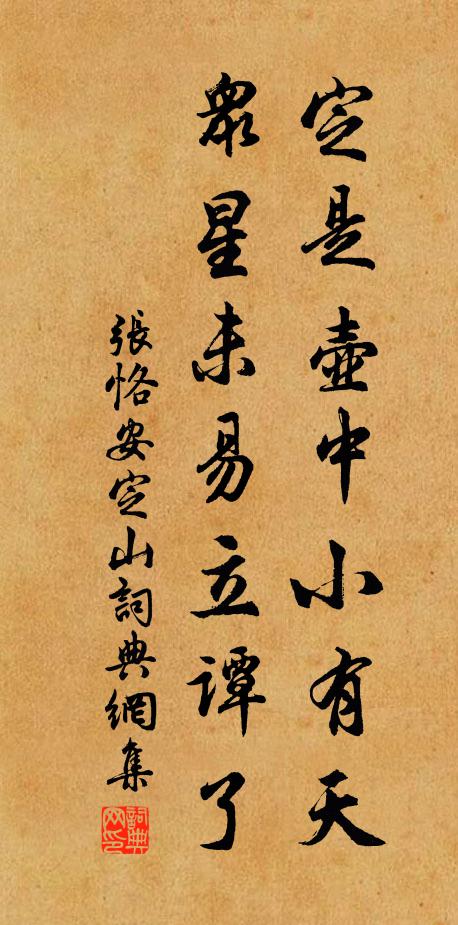 定是壺中小有天
眾星未易立譚了
張恪安定山詞典網集
詞典网印